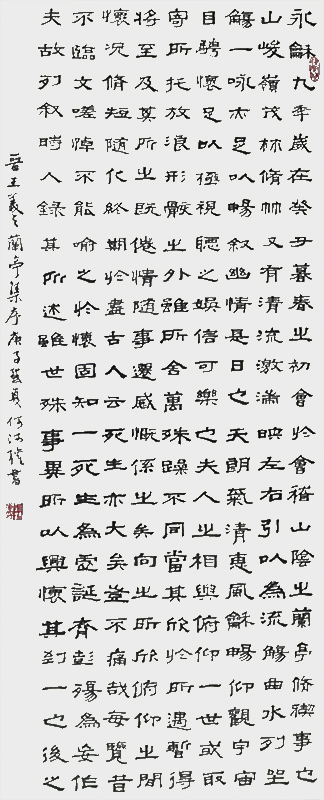 永龢九年歲在癸丑暮春之初會於會稽山陰之蘭亭修禊事也
山峻嶺茂林脩竹又有清流激湍映左右引以為流觴曲水列坐
觴一咏亦足以暢敘幽情是日也天朗氣清惠風龢暢仰觀宇宙
目騁懷足以極視聽之娛信可樂也夫人之相與俯仰一世或取
寄所托放浪形骸之外雖所舍萬殊躁不同當其欣於所遇暫得
將至及其所之既倦情隨事遷感慨係之矣向之所欣俯仰之間
懷況脩短隨化終期於盡古人云死生亦大矣豈不痛哉每覽昔
不臨文嗟悼不能喻之於懷固知一死生為虛誕齊彭殤為妄作
夫故列敘時人錄其所述雖世殊事異所以興懷其致一也後之
晉王羲之蘭亭集序庚子夏何書